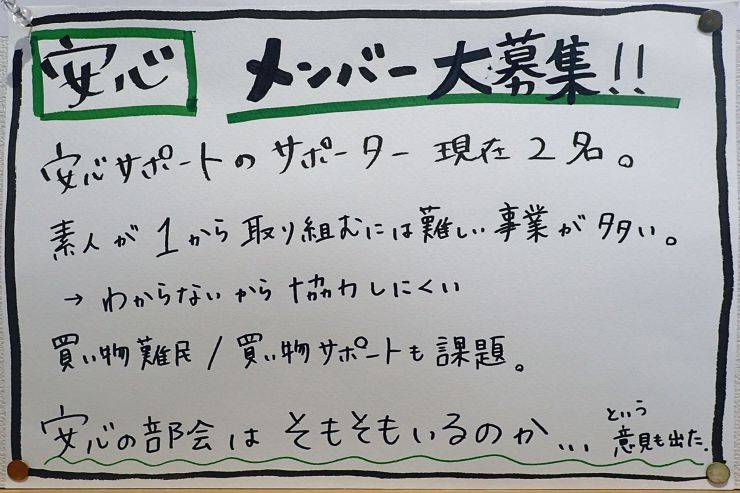 安心 メンバー大募集!!
安心サポートのサポーター 現在2名。
素人が1から取り組むには難しい事業が多い。
→ わからないから協力しにくい
買い物難民/買い物サポートも課題。
安心の部会は そもそもいるのか... という意見も出た.